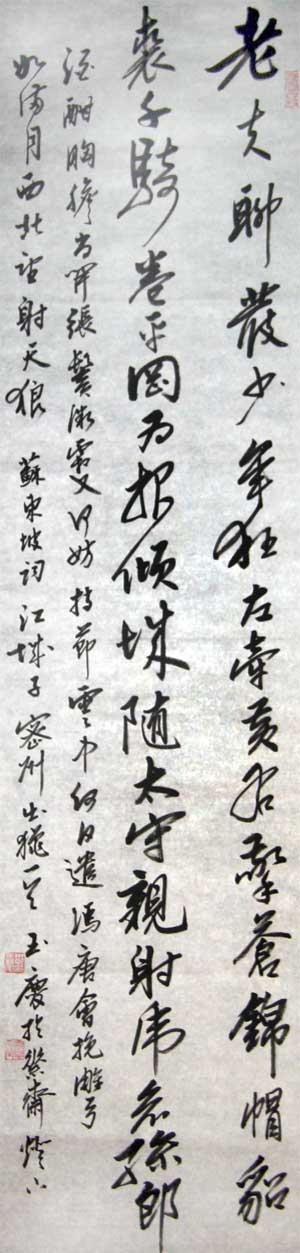 老夫聊發少年狂左牽黃右擎蒼錦帽貂
裘千騎卷平岡為報傾城隨太守親射虎看孫郎
酒酣胸膽尚開張鬢微霜又何妨持節雲中何日遣馮唐會挽雕弓
如滿月西北望射天狼 蘇東坡詞江城子密州出獵一首 玉慶於燈下